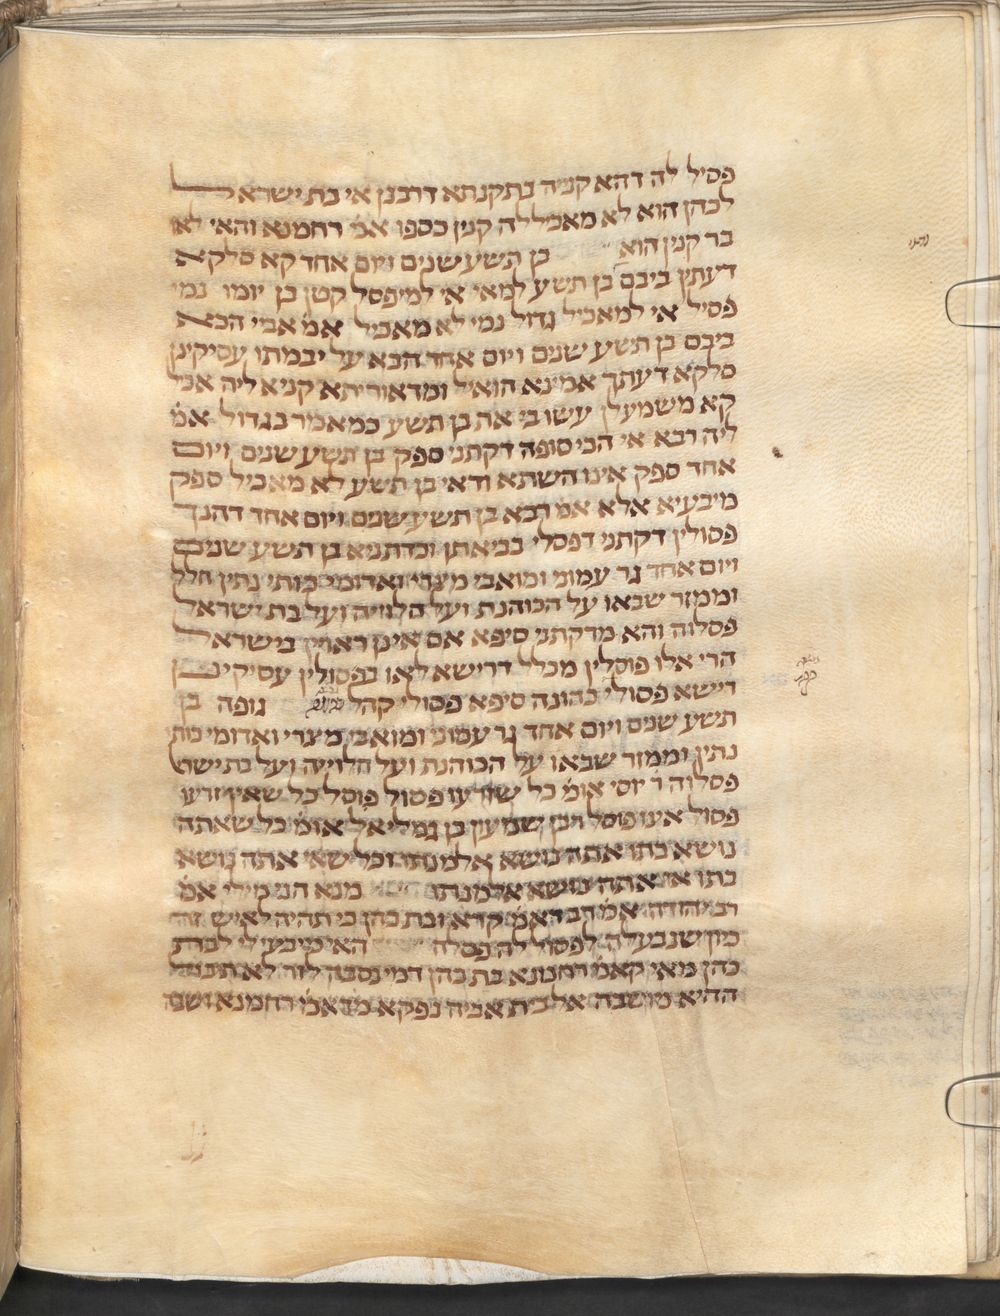 פסיל לה דהא קניה בתקנתא דרבנן אי בת ישראל
לכהן הוא לא מאכיל לה קנין כספו אמ׳ רחמנא והאי לאו
בר קנין הוא בן תשע שנים ויום אחד קא סלקא
דעתין ביבם בן תשע למאי אי למיפסל קטן בן יומו נמי
פסיל אי למאכיל גדול נמי לא מאכיל אמ׳ אביי הכא
ביבם בן תשע שנים ויום אחד הבא על יבמתו עסיקינן
סלקא דעתך אמינא הואיל ומדאוריתא קניא ליה אכל
קא משמע לן עשו ביאת בן תשע כמאמר בגדול אמ׳
ליה רבא אי הכי סופה דקתני ספק בן תשע שנים ויום
אחד ספק אינו השתא ודאי בן תשע לא מאכיל ספק
מיבעיא אלא אמ׳ רבא בן תשע שנים ויום אחד דהנך
פסולין דקתני דפסלי בביאתן וכדתניא בן תשע שנים
ויום אחד גר עמוני ומואבי מצרי ואדומי כותי נתין חלל
וממזר שבאו על הכוהנת ועל הלוייה ועל בת ישראל
פסלוה והא מדקתני סיפא אם אינן ראויין בישראל
הרי אלו פוסלין מכלל דרישא לאו בפסולין עסיקינן
רישא פסולי כהונה סיפא פסולי קהל גופה בן
תשע שנים ויום אחד גר עמוני ומואבי מצרי ואדומי כותי
נתין וממזר שבאו על הכוהנת ועל הלוייה ועל בת ישר׳
פסלוה ר׳ יוסי אומ׳ כל שזרעו פסול פוסל כל שאין זרעו
פסול אינו פוסל רבן שמעון בן גמליאל אומ׳ כל שאתה
נושא בתו אתה נושא אלמנתו וכל שאי אתה נושא
בתו אי אתה נושא אלמנתו מנא הני מילי אמ׳
רב יהודה אמ׳ רב דאמ׳ קרא ובת כהן כי תהיה לאיש זר
כיון שנבעלה לפסול לה פסלה האי מיבעי לי לברת
כהן מאי קאמ׳ רחמנא בת כהן דמינסבה לזר לא תיכול
ההיא מושבה אל בית אביה נפקא מדאמ׳ רחמנא ושבה